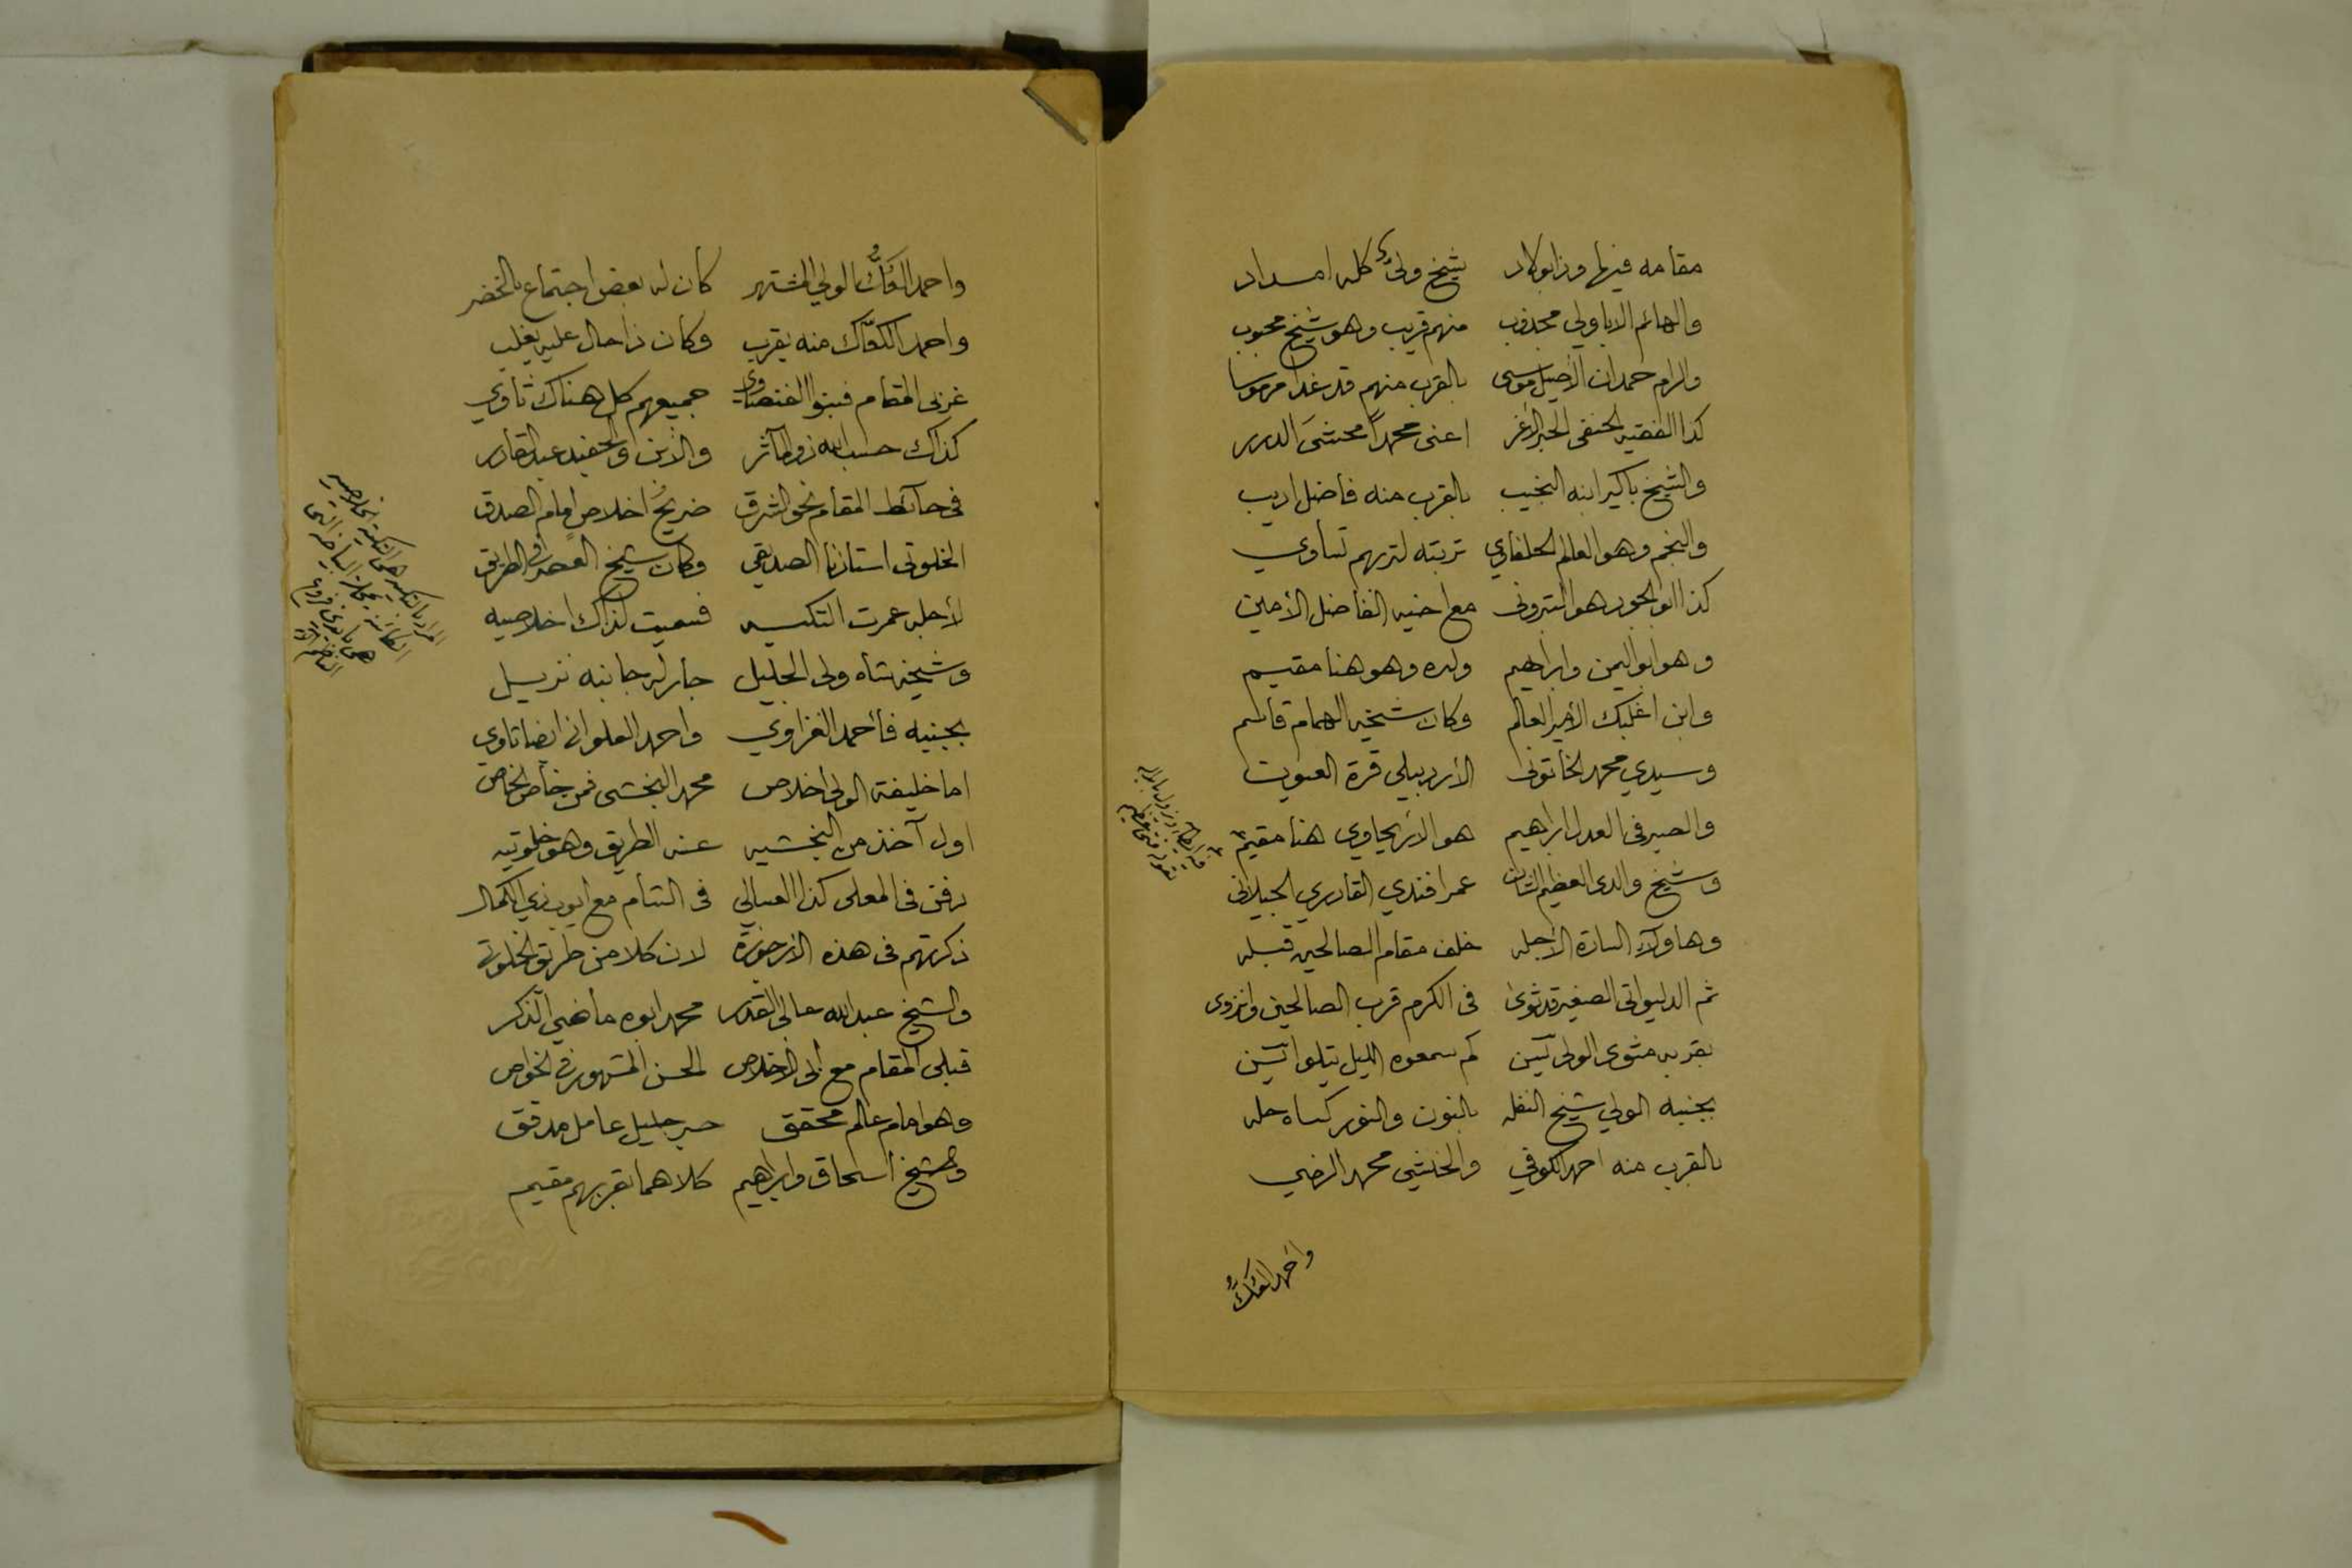 مقامه فيها وذا بولاد شيخ ولي كله امداد
والهائم الاباولي مجذوب منهم قريب وهو شيخ محبوب
والرام حمدان الأصيل موسى بالقرب منهم قد غدا مرموسا
كذا الفقيه الحنفي الحبر الأغر اعني محمداً محشي الدرر
والشيخ باكير ابنه النجيب بالقرب منه فاضل اديب
والنجم وهو العالم الحلفاوي تربته لتربهم تساوي
كذا ابو الجود هو البتروني مع اخيه الفاضل الأمين
وهو ابو اليمن وابراهيم ولده وهو هنا مقيم
وابن اغلبك الأمير العالم وكان شيخه الهمام قاسم
وسيدي محمد الخاتوني الأردبيلي قرة العيون
والصيرفي العدل ابراهيم هو الأريحاوي هنا مقيم
وشيخ والدي العظيم الشان عمر افندي القادري الجيلاني
وهاولآء السادة الأجله خلف مقام الصالحين قبله
ثم الدليواتي الصغير قد ثوى في الكرم قرب الصالحين وانزوى
بقربه مثوى الولي يسين كم سمعوه الليل يتلو يسين
بجنبه الولي شيخ النمله بالنون والنور كساه حله
بالقرب منه احمد الكوفي والخنشي محمد الرضي
واحمد العَكُّ
واحمد العَكُّ الولي المشتهر كان له بعض اجتماع بالخضر
واحمد الكعّاك منه يقرب وكان ذا حال عليه يغلب
غربي المقام فبنو الغنصاوي جميعهم كل هناك ثاوي
كذاك حسب الله ذو المآثر والابن والحفيد عبد القادر
في حائط المقام نحو الشرق ضريح اخلاص امام الصدق
الخلوتي استاذنا الصديقي وكان شيخ العصر في الطريق
لأجله عمرت التكيه فسميت لذاك اخلاصيه
وشيخه شاه ولي الجليل جار له جانبه نزيل
بجنبه فأحمد الغزاوي واحمد العلواني ايضا ثاوي
اما خليفة الولي اخلاص محمد البخشي فمن خاص الخاص
اول آخذ من البخشيه عنه الطريق وهو خلوتيه
دفن في المعلى كذا العسالي في الشام مع ايوب ذي الكمال
ذكرتهم في هذه الأرجوزة لان كلا من طريق الخلوتي
والشيخ عبد الله عالي القدر محمد ابوه ماضي الذكر
قبلي المقام مع أبي الاخلاص الحسن المشهور في الخواص
وهو امام عالم محقق حبر جليل عامل مدقق
والشيخ اسحاق وابراهيم كلاهما بقربهم مقيم